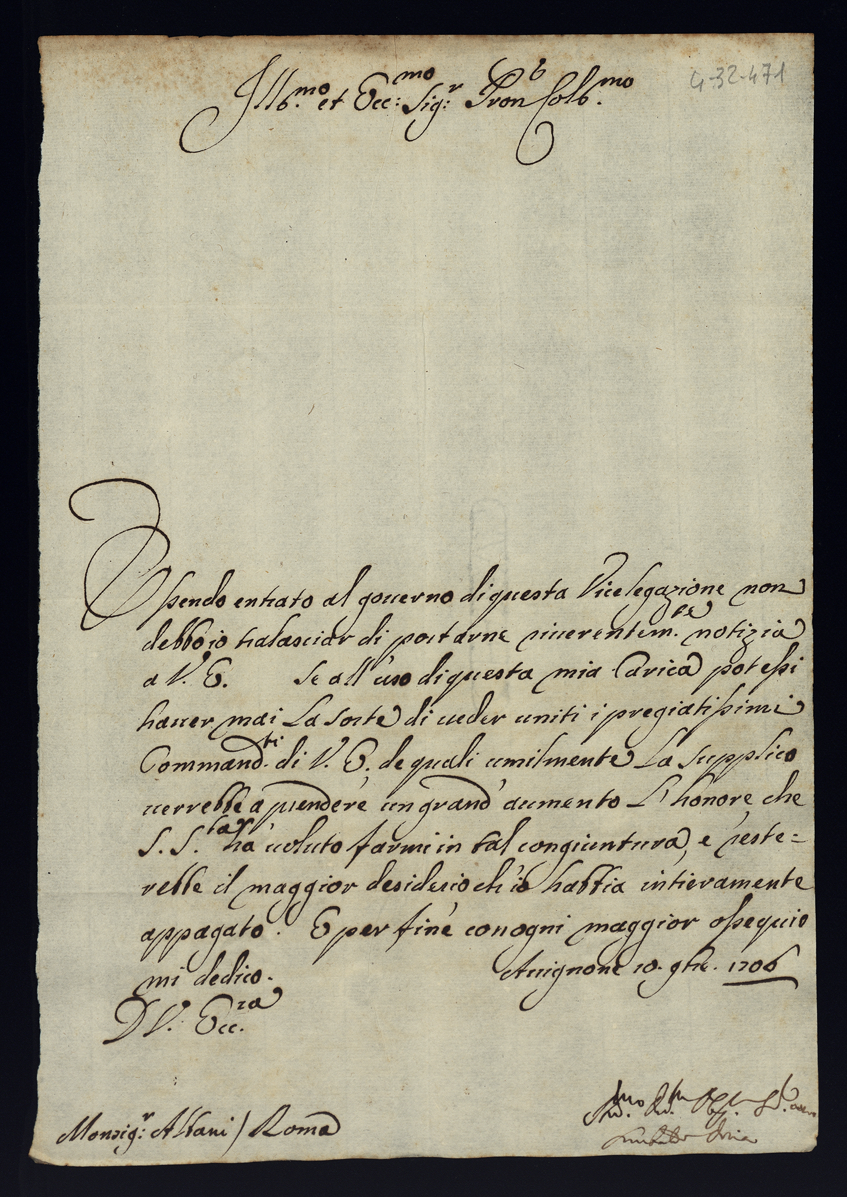 Ill.mo et Ecc:mo Sig:r Pron Colb.mo
4-32-471
Essendo entrato al gouerno di questa Vicelegazione non
debbo io tralasciar di portarne riuerentem.te notizia
a V. E. Se all'uso di questa mia Carica potessi
hauer mai La sorte di ueder uniti i pregiatissimi
Command.ti di V. E. de quali umilmente La supplico
uerrebbe a prendere un grand' aumento L'honore, che
S. S.tà hà uoluto farmi in tal congiuntura, e reste=
rebbe il maggior desiderio ch'io habbia intieramente
appagato. E per fine con ogni maggior ossequio
mi dedico. Auignone 10. 9bre. 1706
D V. Ecc.za
Monsig:r Albani / Roma